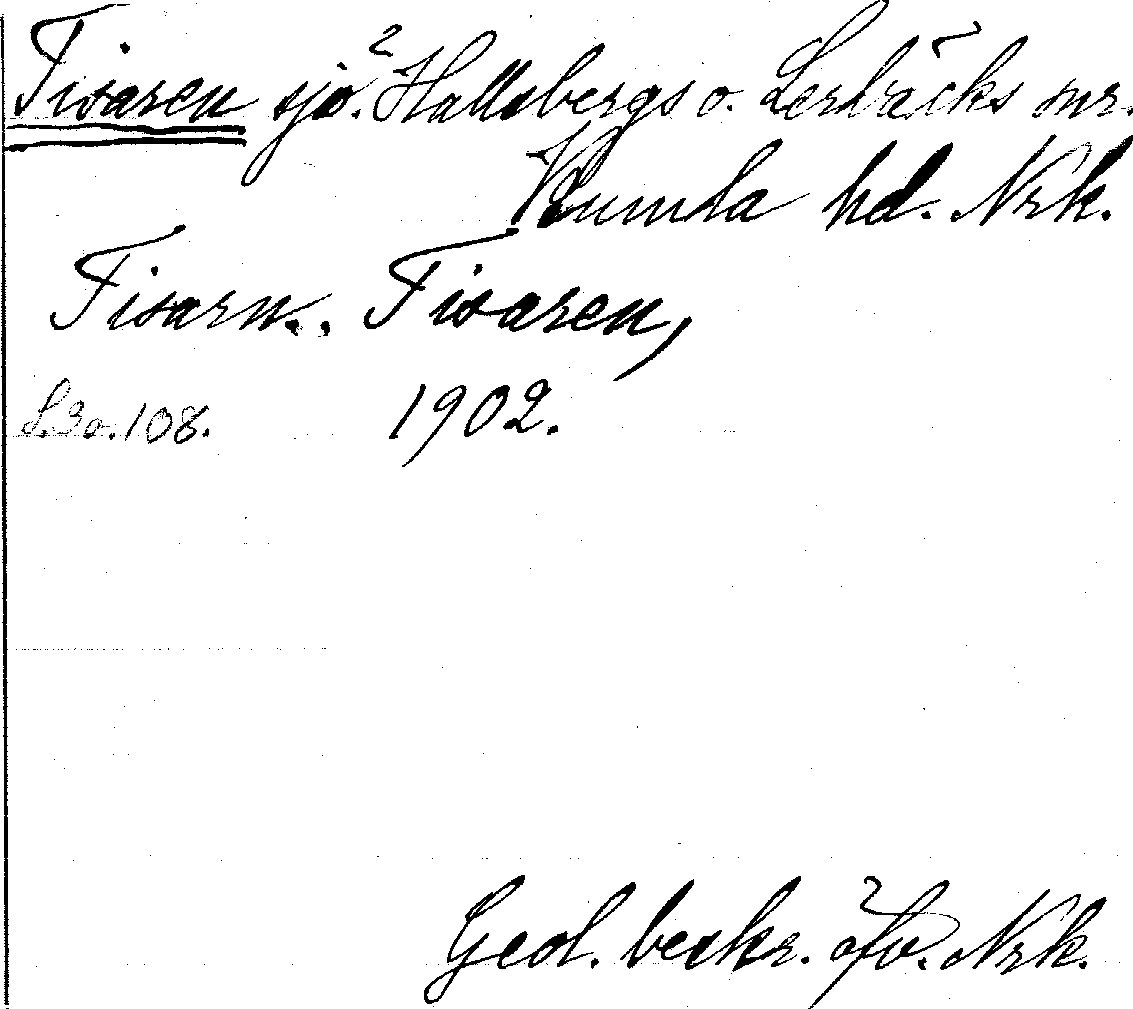 Tisaren sjö. Hallsbergs o. Lerbäcks snr.
Kumla hd. Nrk.
Tisarn. Tisaren,
S. 30. 108. 1902.
Geol. beskr. öfv. Nrk.